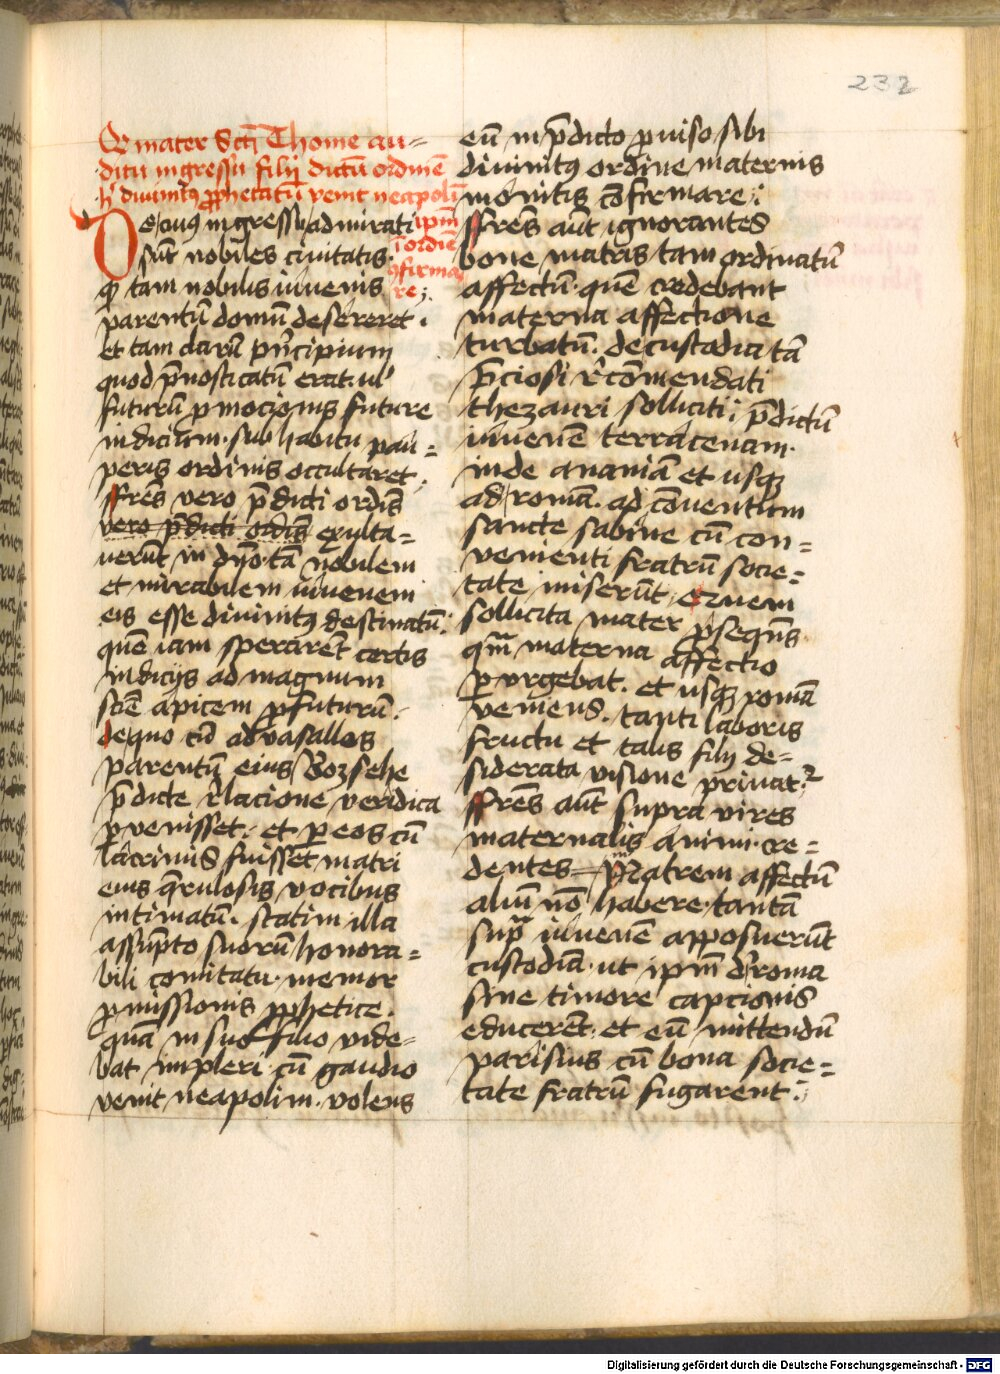 232
Qr mater Scti Thome au=
ditu ingressu filij dictū ordinē
diuinitus ꝓphetatū venit neapolī
ipm̄
ī ordīe
ꝯfirma
re;
De cuius ingressu admirati
sunt nobiles ciuitatis
qꝫ tam nobilis iuuenis
parentū domū desereret .
et tam clarū pncipium
quod p̄nosticatū erat ul'
futurū ꝓmocionis future
indicium . sub habitu pau=
peris ordinis occultaret .
ffrēs vero p̄dicti ordīs
vero p̄dicti ordīs exulta=
uerūt in dn̄o tā nobilem
et mirabilem iuuenem
eis esse diuinitus destinatū :
quē iam sperarēt certis
indicijs ad magnum
sciē apicem ꝓfuturū .
de quo cū ad vasallos
parentū eius
p̄dicte rlacione veridica
ꝑvenisset . et ꝑ eos cū
lacrimis fuisset matri
eius q̄rulosis vocibus
intimatū . statim illa
assūpto suorū honora=
bili comitatu . memor
ꝓmissionis ꝓphetice .
quā in suo filio vide=
bat impleri . cū gaudio
venit neapolim . volens
eū in p̄dicto ꝓuiso sibi
diuinitus ordine maternis
monitis cōfirmare ;
ffrēs aūt ignorantes
bone matris tam ordinatū
affectū . quē credebant
materna affectione
turbatū . de custodia tā
p̄ciosi rcōmendati
thezauri solliciti ; p̄dictū
iuuenē terracenam .
inde ananiā et usqꝫ
ad romā . ad cōventum
sancte sabine cū con=
venienti fratrū socie=
tate miserūt . quem
sollicita mater ꝓsequēs
qm̄ materna affectio
ꝑurgebat . et usqꝫ romā
veniens . tanti laboris
fructu et talis filij de=
siderata visione privat'
ffrēs aūt supra vires
maternalis animi . cre=
dentes Matrem affectū
aliū nō habere . tantā
supra iuuenē apposuerūt
custodiā . ut ipm̄ d' roma
sine timore capcionis
educerēt . et eū mittendū
parisius cū bona socie=
tate fratrū fugarent .
Digitalisierung gefördert durch die Deutsche Forschungsgemeinschaft - DFG